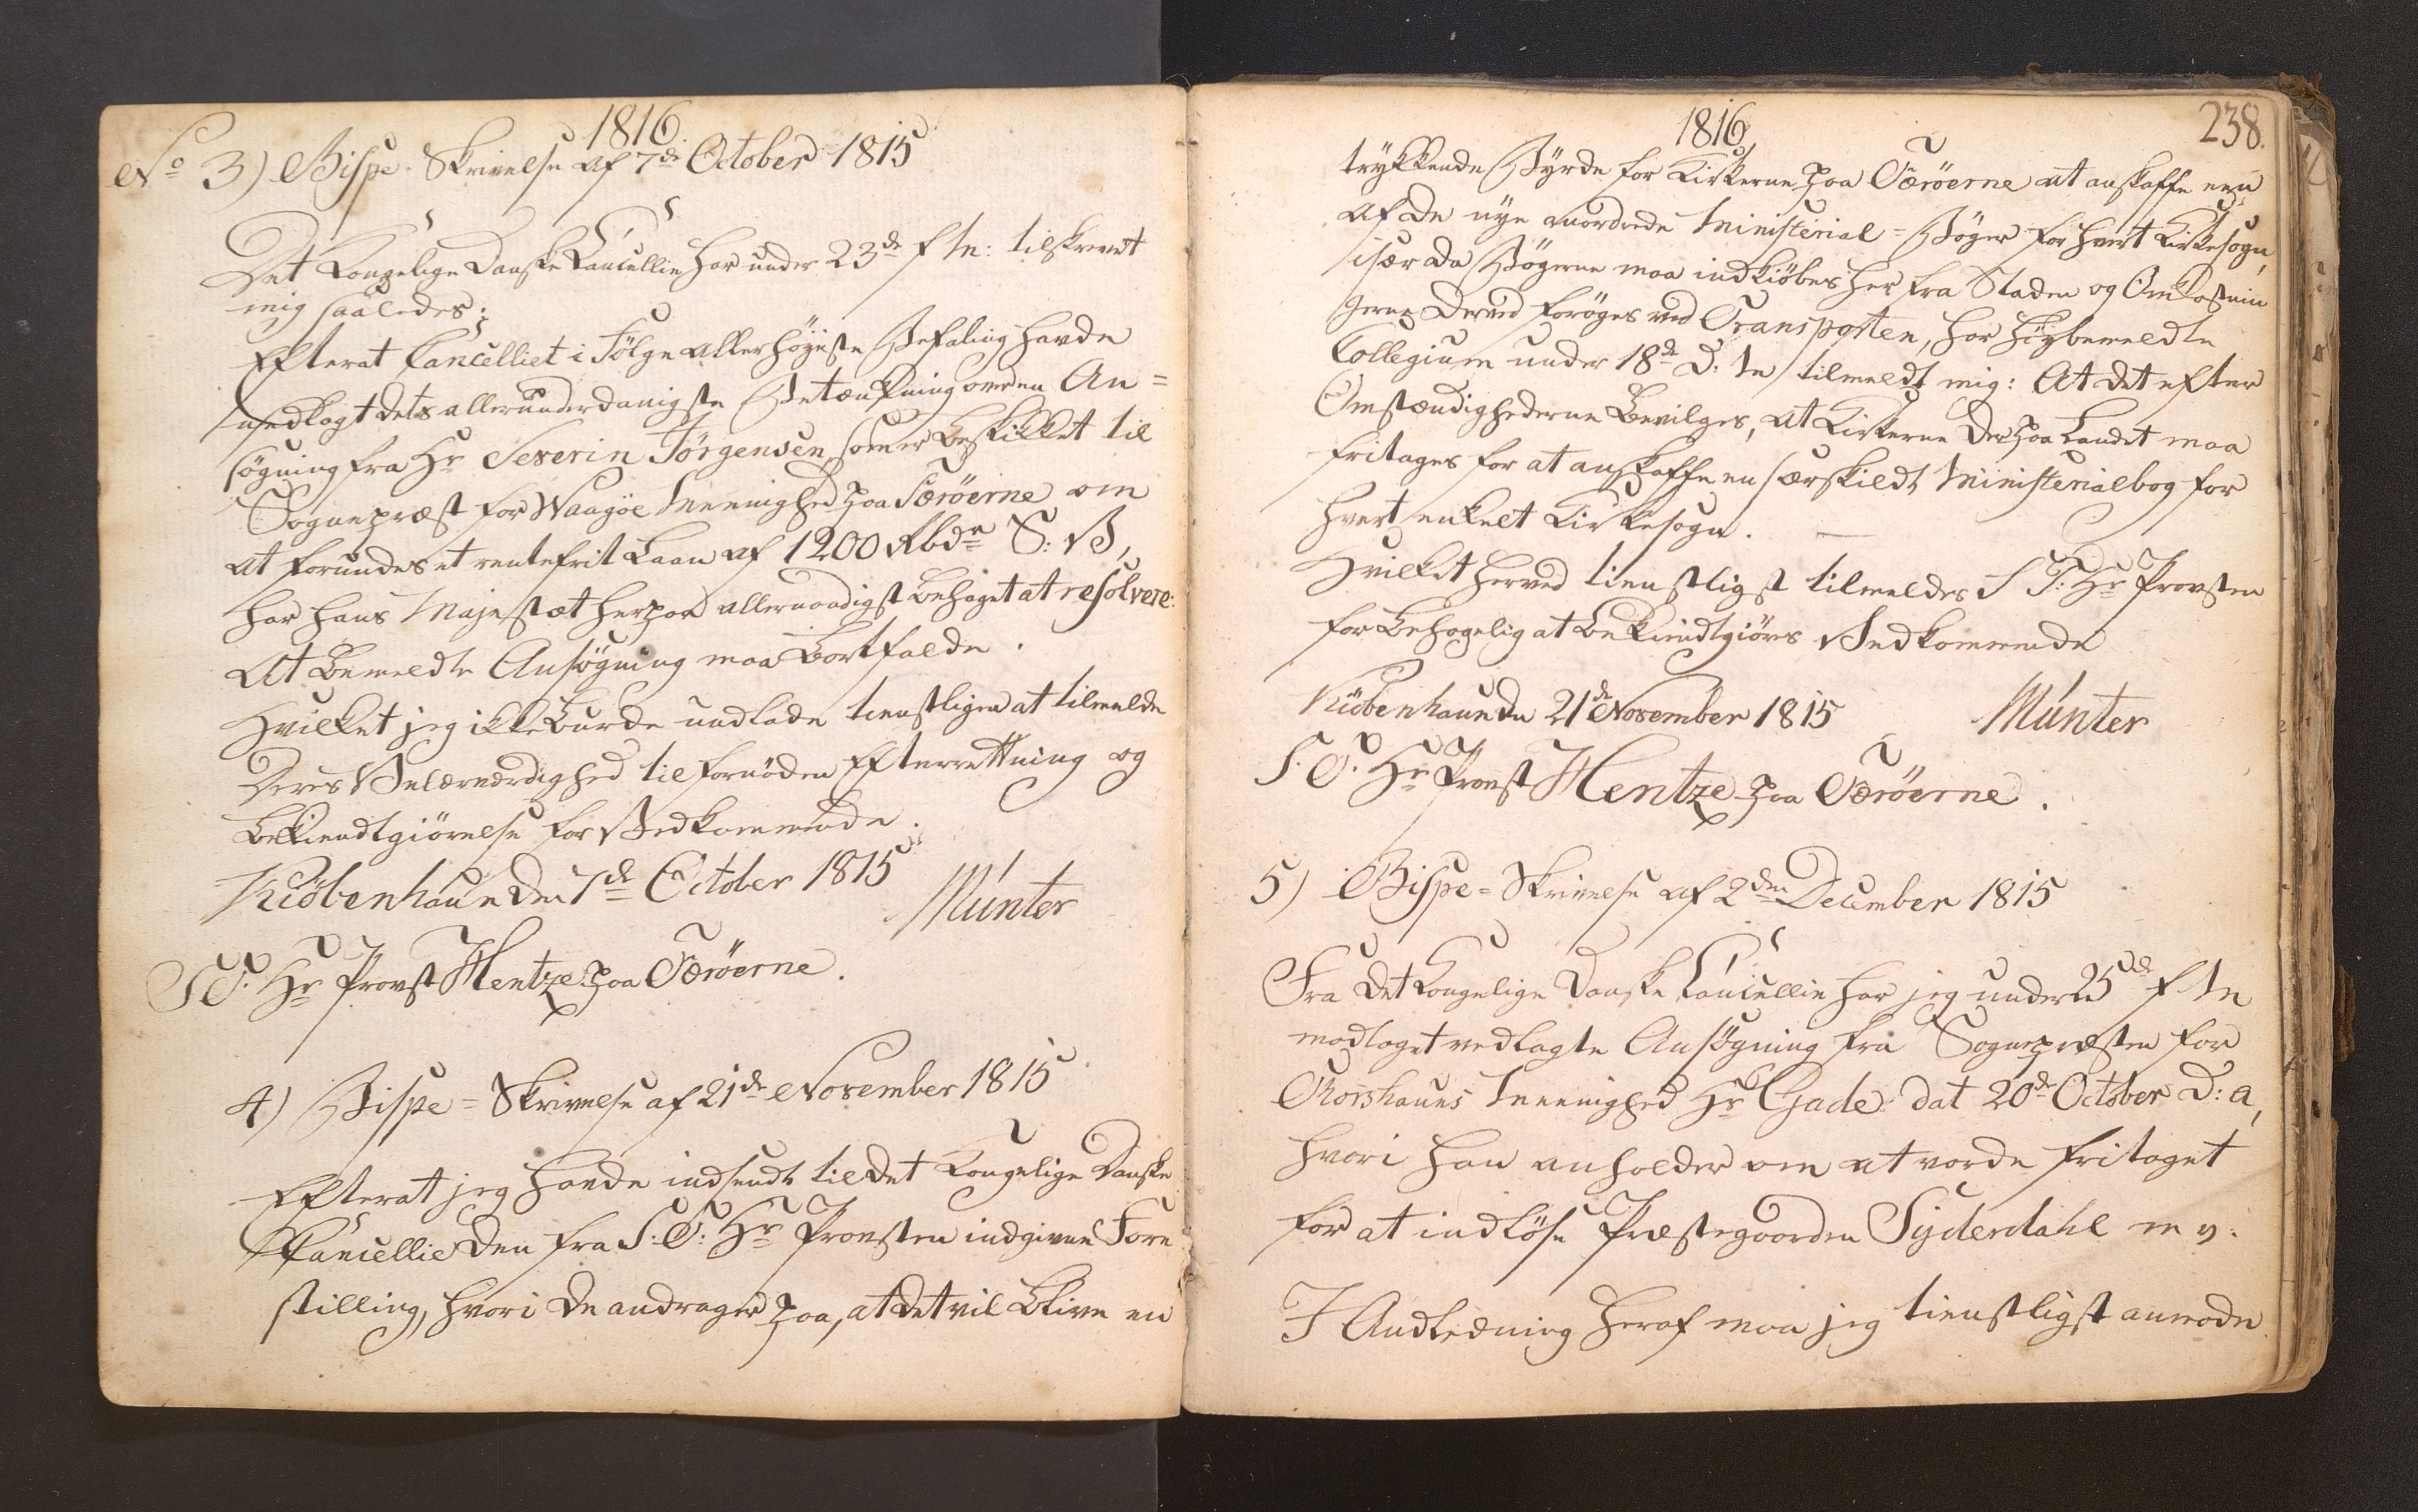 1816
No 3) Bispe-Skrivelse af 7de October 1815
Det Kongelige Danske Cancellie har under 23de f. M: tilskrevet
mig saaledes:
Efterat Cancelliet i Følge allerhøieste Befaling havde
nedlagt dets allerunderdanigste Betænkning over en An=
søgning fra Hr Severin Jörgensen, som er beskikket til
Sognepræst for Waagöe Menighed paa Færöerne om
at forundes et rentefrit Laan af 1200 Rbdr S: V,
har Hans Majestæt herpaa allernaadigst behaget at resolvere:
At bemeldte Ansøgning maa bortfalde.
Hvilket jeg ikke burde undlade tienstligen at tilmelde
Deres Velærværdighed til fornöden Efterretning og
Bekiendtgiörelse for Vedkommende.
Kiöbenhaun den 7de October 1815
Münter
S. T. Hr Provst Hentze paa Færöerne.
4) Bispe=Skrivelse af 21de November 1815
Efterat jeg havde indsendt til det Kongelige Danske
Cancellie den fra S. T. Hr Provsten indgivne Fore
stilling, hvori De andrager paa, at det vil blive en
1816
238.
trykkende Byrde for Kirkerne paa Færöerne at anskaffe een
af de nye anordnede Ministerial=Böger for hvert Kirkesogn,
især da Bögerne maa indkiöbes her fra Staden og Omkostnin
gerne derved foröges ved Transporten, har höibemeldte
Collegium under 18de d: M tilmeldt mig: At det efter
Omstændighederne bevilges, at Kirkerne der paa Landet maa
fritages for at anskaffe en særskildt Ministerialbog for
hvert enkelt Kirkesogn.
Hvilket herved tienstligst tilmeldes S T: Hr Provsten
for behagelig at bekiendtgiöres Vedkommende
Kiöbenhaun den 21de November 1815
Münter
S. T. Hr Provst Hentze paa Færöerne.
5) Bispe=Skrivelse af 2den December 1815
Fra det Kongelige Danske Cancellie har jeg under 25de f M
modtaget vedlagte Ansögning fra Sognepræsten for
Thorshauns Menighed Hr Gade dat 20de October d: a,
hvori han anholder om at vorde fritaget
for at indlöse Præstegaarden Syderdahl m v:
I Anledning heraf maa jeg tienstligst anmode